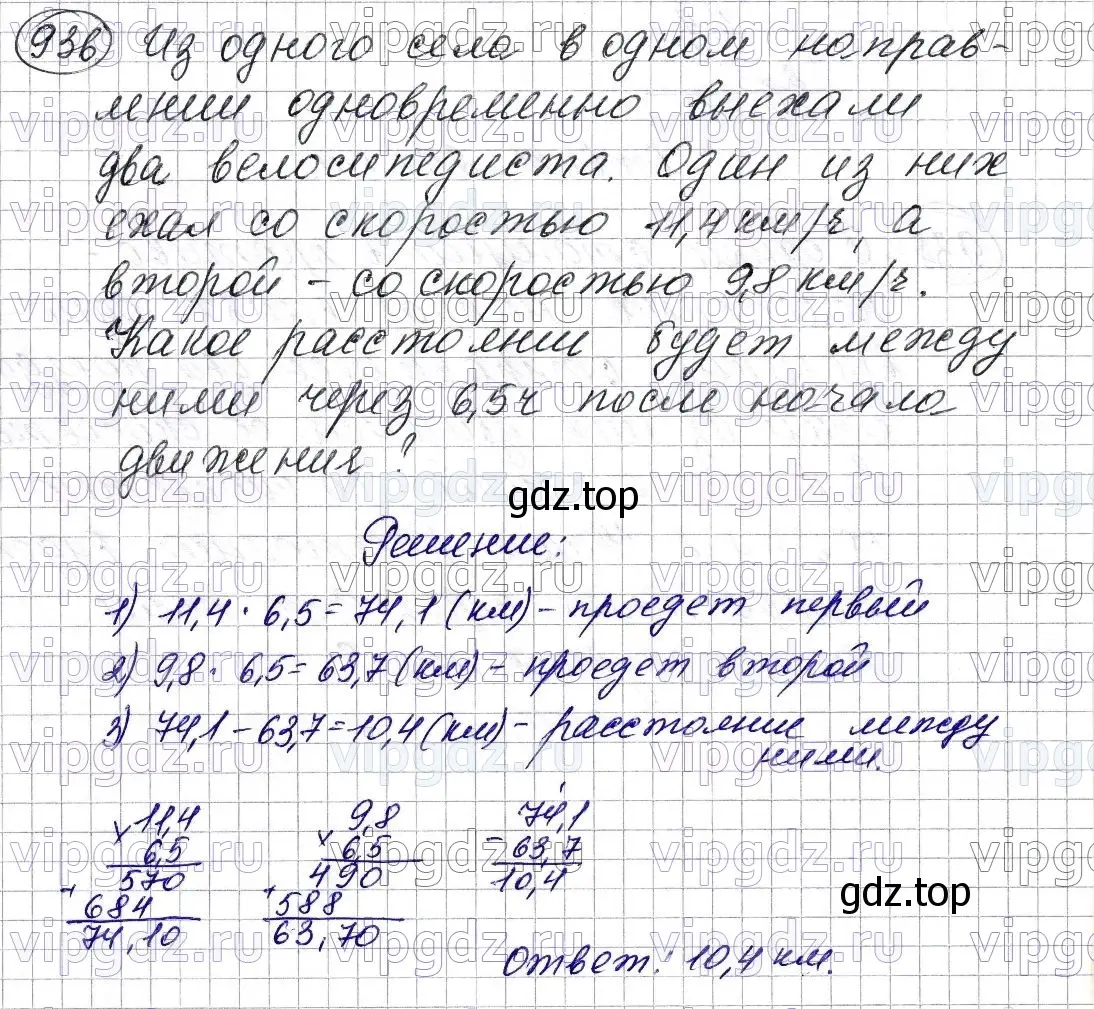 936 Из одного села в одном направ-
лении одновременно выехали
два велосипедиста. Один из них
ехал со скоростью 11,4 км/ч, а
второй – со скоростью 9,8 км/ч.
Какое расстояние будет между
ними через 6,5 ч после начала
движения?
gdz.top
Решение:
1) 11,4 · 6,5 = 74,1 (км) – проедет первый
2) 9,8 · 6,5 = 63,7 (км) – проедет второй
3) 74,1 – 63,7 = 10,4 (км) – расстояние между
ними.
× 11,4
6,5
570
+ 684
74,10
× 9,8
6,5
490
+ 588
63,70
– 74,1
63,7
10,4
gdz.top
Ответ: 10,4 км.
vipgdz.ru